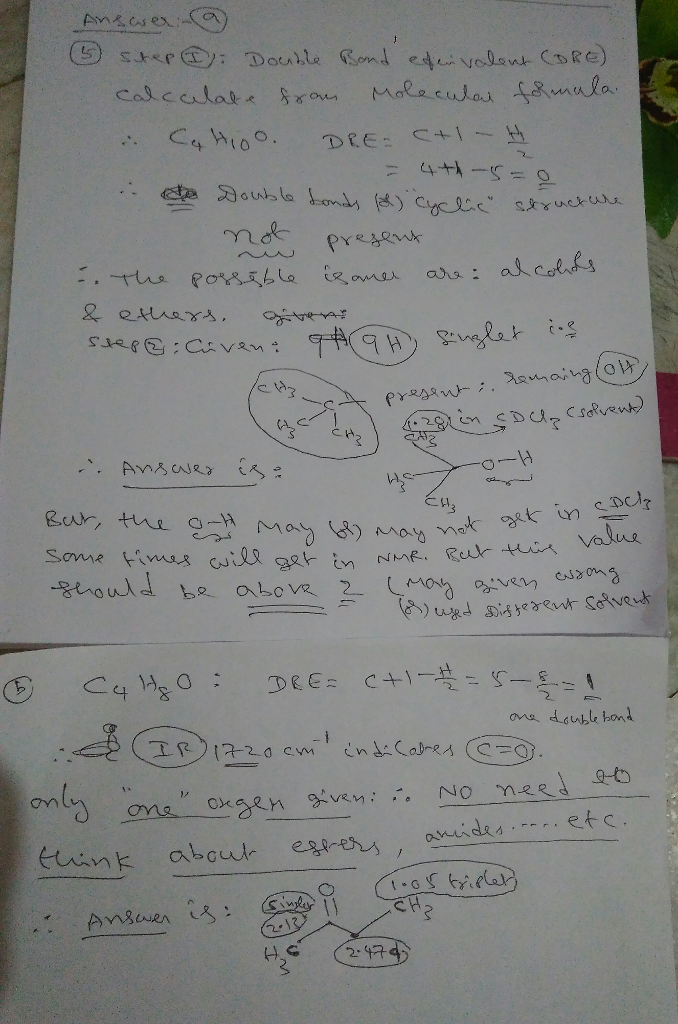 Answer:- (a)
(5) Step (I): Double Bond equivalent (DBE)
calculate from Molecular formula.
∴ C4H10O. DBE = C+1 - H/2
= 4+1-5 = 0
∴ Double bonds (or) "cyclic" structure
not present
∴ The possible isomer are: alcohols
& ethers.
Step (2): Given: 9H singlet i.e
CH3 C present ∴ remaing OH
H3C CH3 1.28 in CDCl3 (solvent)
∴ Answer is: CH3
H3C O-H
CH3
But, the O-H may (or) may not get in CDCl3
Some times will get in NMR. But this value
should be above 2 (may given wrong
(or) used different solvent
(b) C4H8O : DBE = C+1-H/2 = 5-8/2 = 1
one double bond
∴ IR 1720 cm-1 indicates C=O.
only "one" oxgen given: ∴ NO need to
think about esters, amides.....etc.
∴ Answer is: singlet O 1.05 triplet
2.13 CH3
H3C 2.47q